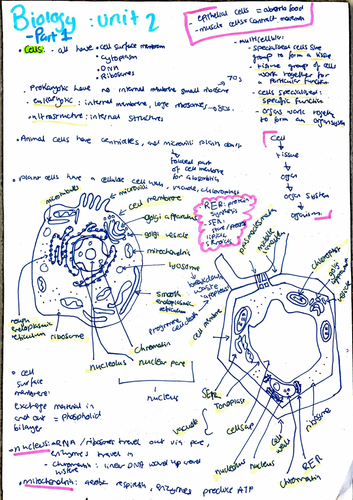 Biology : unit 2
- Part 1
- epithelial cells = absorb food
- muscle cells = contract
• Cells: - all have • cell surface membrane
• cytoplasm
• DNA
• Ribosomes
- Prokaryotic have no internal membrane small ribosome → 70s
- Eukaryotic : internal membrane, large ribosomes → 80s
• ultrastructure: internal structures
multicellular:
• specialised cells
group to form a tissue
• tissue group of cells
work together for
particular function
• cells specialised:
specific function
• organs work together
to form an organ system
• Animal cells have centrioles, and microvilli plants don't
↓
folded part
of cell membrane
for absorption
cell
↓
tissue
↓
organ
↓
organ system
↓
organism
• plant cells have a cellulose cell wall, vacuole, chloroplasts
- RER: protein
synthesis
- SER:
lipids
microtubules
microvilli
cell membrane
golgi apparatus
golgi vesicle
mitochondria
lysosome
→ breakdown
waste
apoptosis
↓
programme
cell death
smooth
endoplasmic
reticulum
rough
endoplasmic
reticulum
ribosome
chromatin
nucleolus
nuclear pore
nucleus
plasmodesmata
middle
lamella
chloroplast
golgi
apparatus
vesicle
cell membrane
SER
Tonoplast
vacuole
cell sap
nucleolus
nucleus
cell
wall
ribosome
RER
chromatin
• cell
surface
membrane:
exchange material in
and out = phospholipid
bilayer
• nucleus: mRNA / ribosomes travel out via pore,
enzymes travel in
- chromatin: linear DNA wound up around
histones
• mitochondria: aerobic respiration, enzymes produce ATP